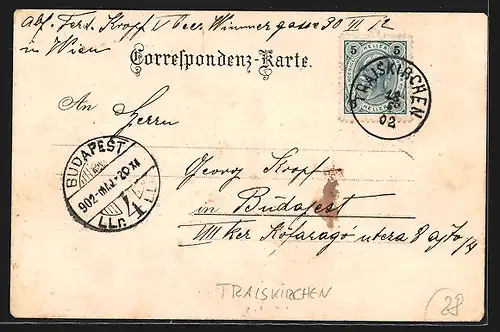 Abs. Ferd. Kropf V Bez. Wimmergasse 30 III/12
in Wien
Correspondenz-Karte.
5 HELLER 5
TRAISKIRCHEN
02
An
Herrn
BUDAPEST
902 MÁJ. 20
4
Georg Kropf
in Budapest
VIII ker Kőfaragó utcza 8 ajtó
TRAISKIRCHEN
28